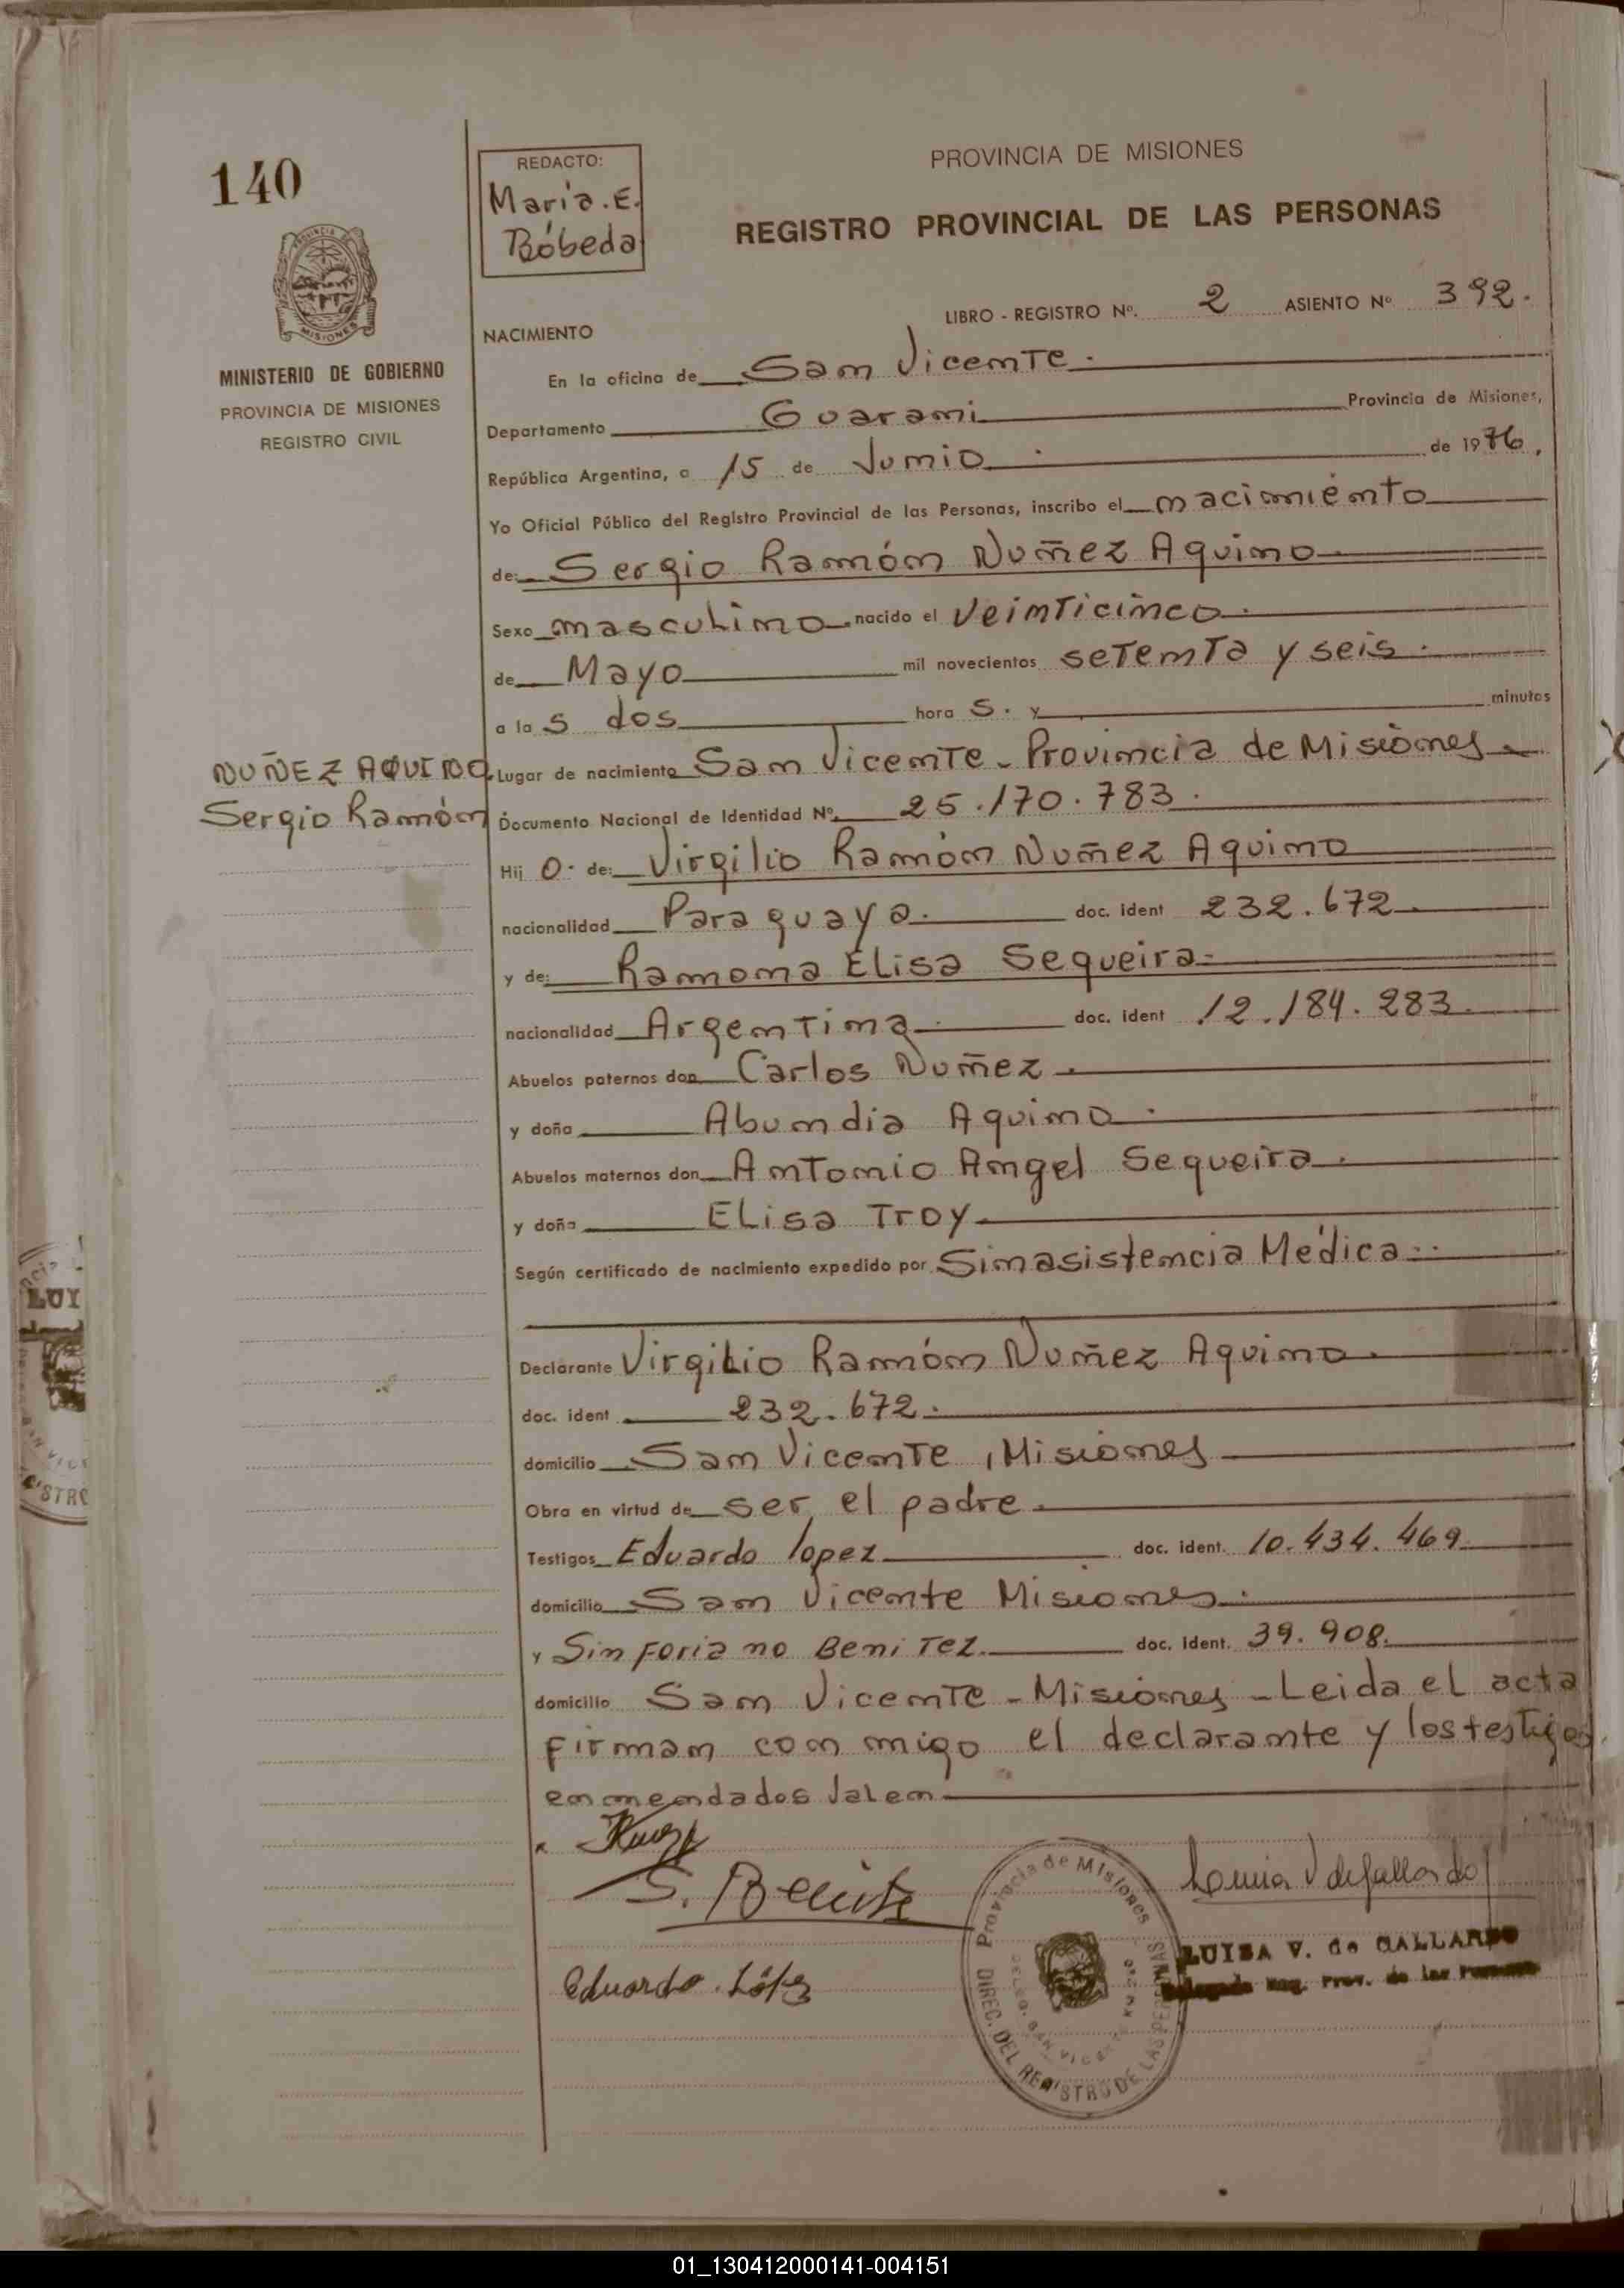 140
PROVINCIA DE MISIONES
MINISTERIO DE GOBIERNO
PROVINCIA DE MISIONES
REGISTRO CIVIL
NUÑEZ AQUINO
Sergio Ramón
REDACTO:
Maria. E.
Bóbeda
PROVINCIA DE MISIONES
REGISTRO PROVINCIAL DE LAS PERSONAS
LIBRO - REGISTRO Nº. 2 ASIENTO Nº 392.
NACIMIENTO
En la oficina de San Vicente.
Departamento Guarani Provincia de Misiones,
República Argentina, a 15 de Junio. de 1976,
Yo Oficial Público del Registro Provincial de las Personas, inscribo el nacimiento
de: Sergio Ramón Nuñez Aquino
Sexo masculino. nacido el veinticinco.
de Mayo mil novecientos setenta y seis.
a las dos hora s. y minutos
Lugar de nacimiento San Vicente - Provincia de Misiones
Documento Nacional de Identidad Nº. 25.170.783.
Hij o. de: Virgilio Ramón Nuñez Aquino
nacionalidad Paraguaya. doc. ident 232.672
y de: Ramona Elisa Sequeira
nacionalidad Argentina doc. ident 12.184.283.
Abuelos paternos don Carlos Nuñez.
y doña Abundia Aquino.
Abuelos maternos don Antonio Angel Sequeira.
y doña Elisa Troy
Según certificado de nacimiento expedido por Sinasistencia Médica..
Declarante Virgilio Ramón Nuñez Aquino.
doc. ident 232.672.
domicilio San Vicente, Misiones
Obra en virtud de ser el padre.
Testigos Eduardo lopez doc. ident. 10.434.469
domicilio San Vicente Misiones.
y Sinforiano Benitez. doc. ident. 39.908.
domicilio San Vicente - Misiones - Leida el acta
firman con migo el declarante y los testigos
enmendados Valen
S. Benite
Eduardo. López
Luisa V de Gallardo
LUISA V. de GALLARDO
Delegada Reg. Prov. de las Personas
Provincia de Misiones
DIREC. DEL REGISTRO DE LAS PERSONAS
DELEG. SAN VICENTE
LUI
01_130412000141-004151